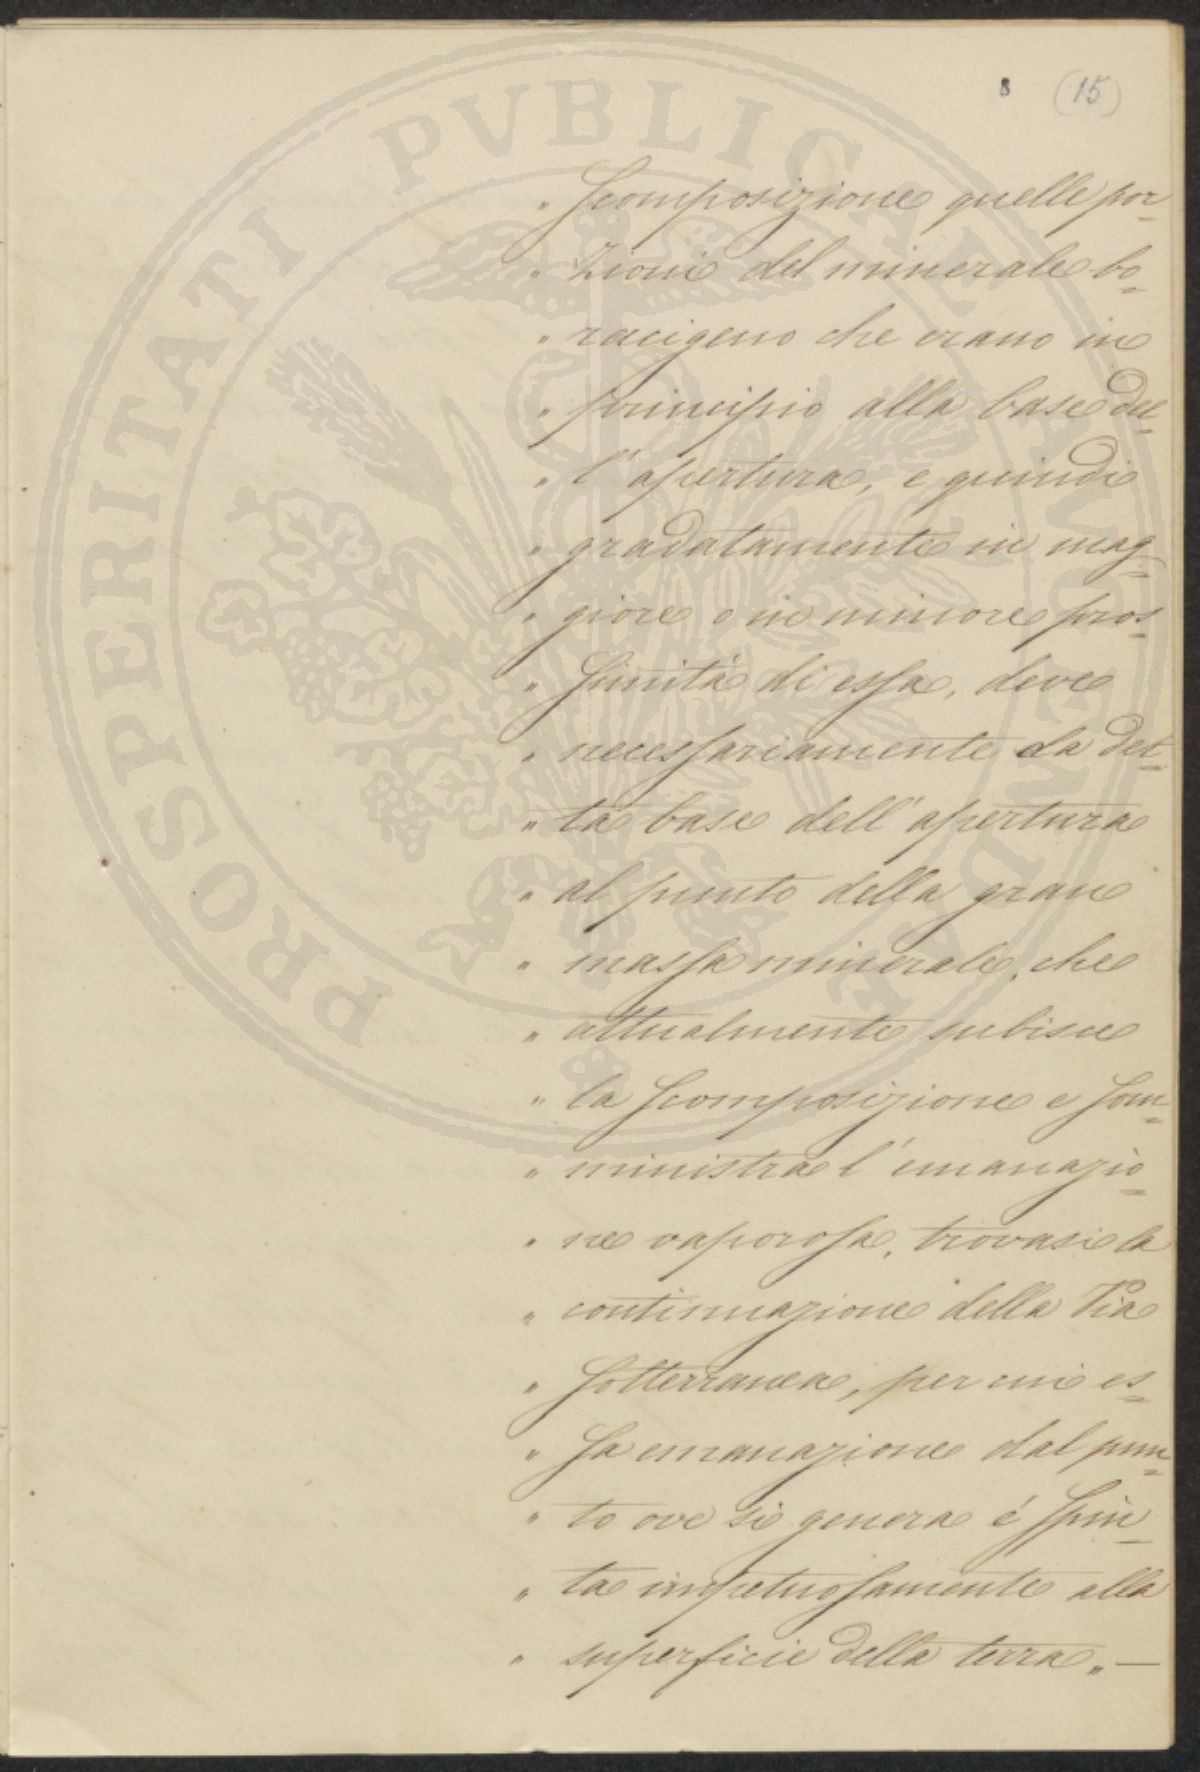 8 (15)
„ Scomposizione quelle por=
„ zioni del minerale bo=
„ racigeno che erano in
„ principio alla base del=
„ l'apertura, e quindi
„ gradatamente in mag=
„ giore o in minore pros=
„ simità di essa, deve
„ necessariamente da det=
„ ta base dell'apertura
„ al punto della gran
„ massa minerale, che
„ attualmente subisce
„ la Scomposizione e Som=
„ ministra l'emanazio=
„ ne vaporosa, trovasi la
„ continuazione della Via
„ Sotterranea, per cui es=
„ sa emanazione dal pun=
„ to ove si genera é Spin=
„ ta impetuosamente alla
„ superficie della terra„ —
PROSPERITATI PVBLICAE AVGENDAE